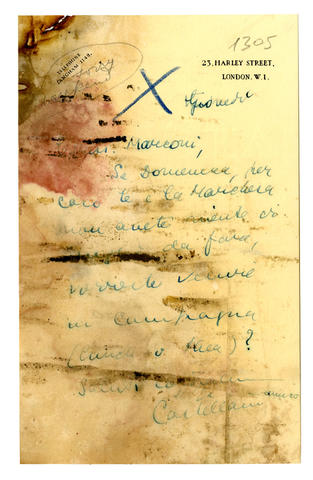 1305
TELEPHONE
LANGHAM 1148.
23, HARLEY STREET,
LONDON. W.1.
Giovedi
Marconi,
Se Domenica, per
caso te e la Marchesa
non avete niente di
da fare,
vorreste venire
in campagna
(lunch o thea)?
Castellani